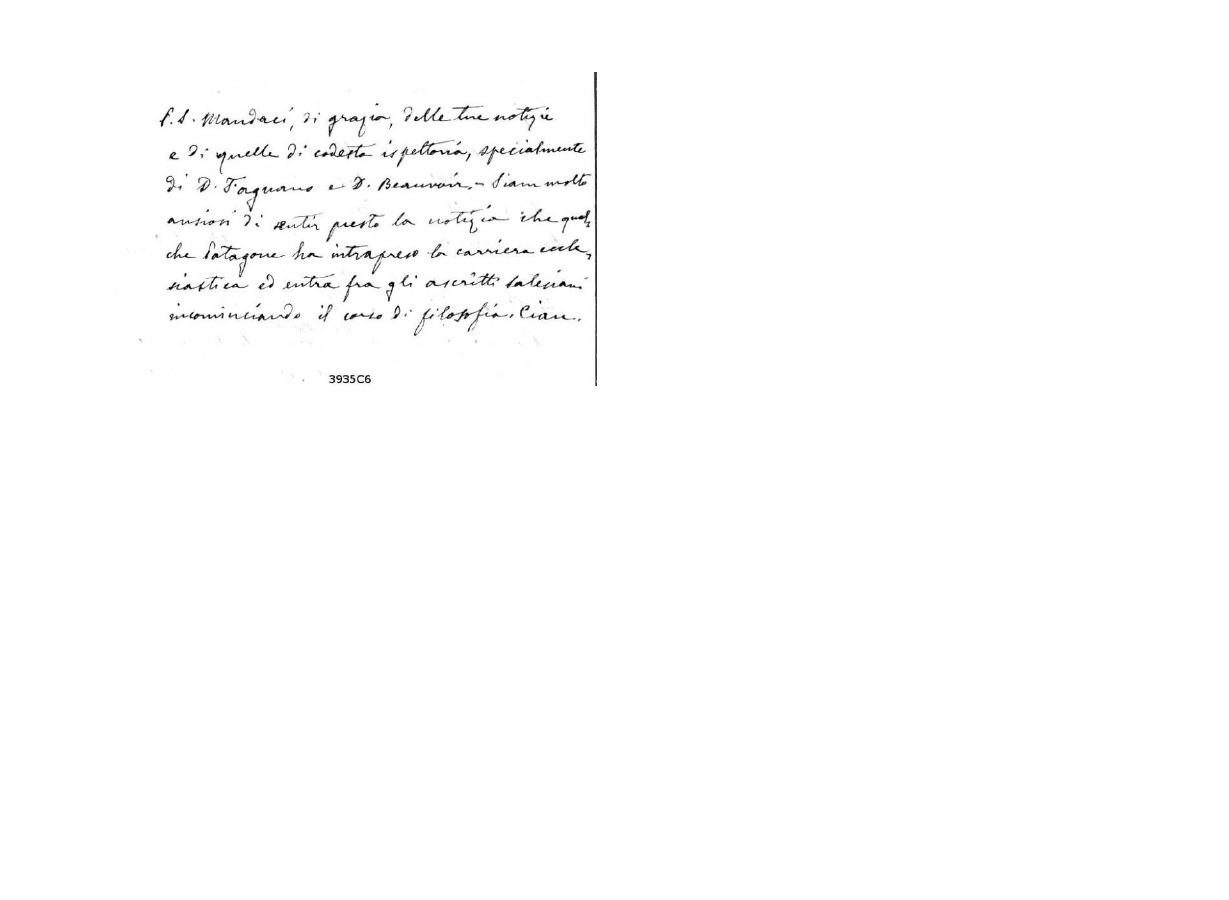 P.S. Mandaci, di grazia, delle tue notizie
e di quelle di codesta ispettoria, specialmente
di D. Fagnano e D. Beauvoir. - Siam molto
ansiosi di sentir presto la notizia che qual,
che Patagone ha intrapreso la carriera eccle,
siastica ed entra fra gli ascritti salesiani
incominciando il corso di filosofia. Ciau.
3935C6